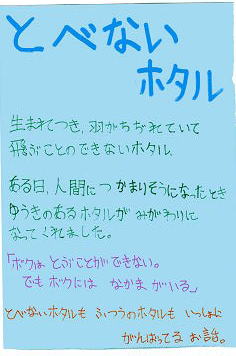 とべない
ホタル
生まれつき、羽がちぢれていて
飛ぶことのできないホタル、
ある日、人間につかまりそうになったとき
ゆうきのあるホタルがみがわりに
なってくれました。
「ボクはとぶことができない。
でもボクには なかまがいる」
とべないホタルも ふつうのホタルも いっしょに
がんばってる お話。